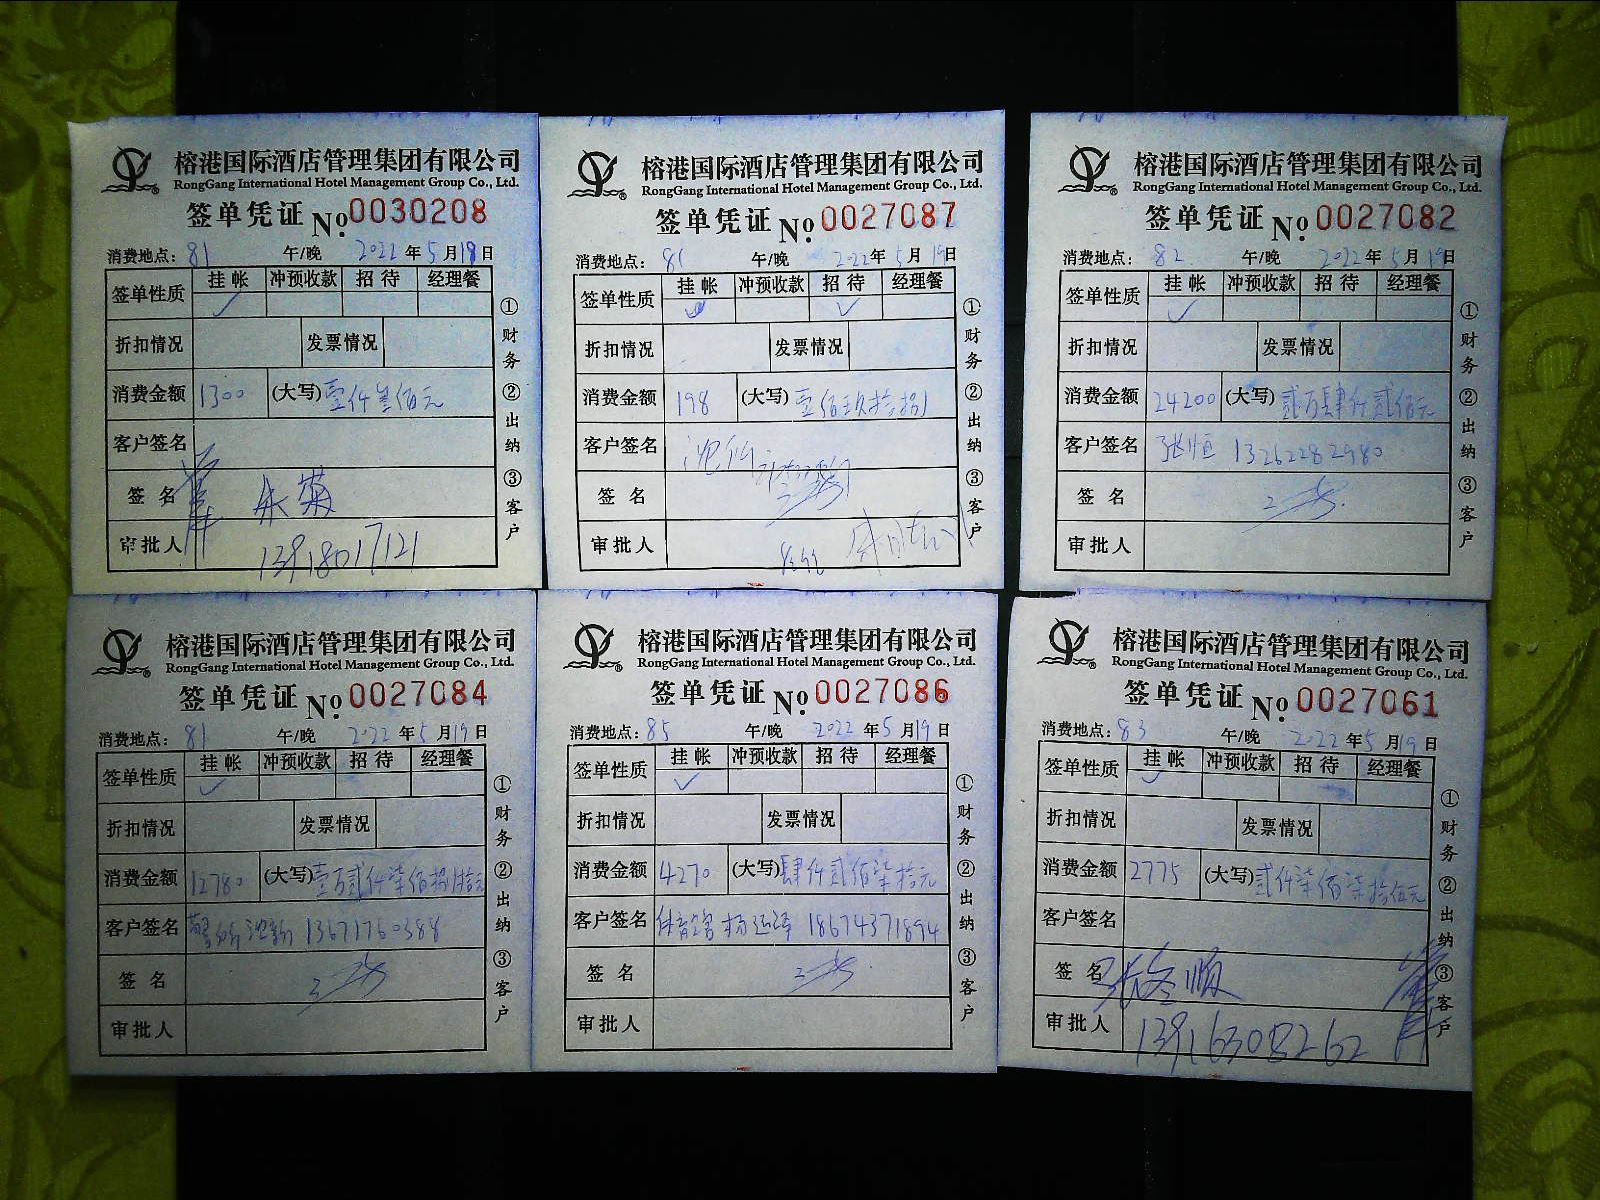 榕港国际酒店管理集团有限公司
RongGang International Hotel Management Group Co., Ltd.
签单凭证 No. 0030208
消费地点: 81 午/晚 2022年5月19日
签单性质 挂帐 冲预收款 招待 经理餐
✓
折扣情况 发票情况
消费金额 1300 (大写) 壹仟叁佰元
客户签名
签名 朱菊
审批人 13918017121
①财务 ②出纳 ③客户
榕港国际酒店管理集团有限公司
RongGang International Hotel Management Group Co., Ltd.
签单凭证 No. 0027087
消费地点: 81 午/晚 2022年5月19日
签单性质 挂帐 冲预收款 招待 经理餐
✓
折扣情况 发票情况
消费金额 198 (大写) 壹佰玖拾捌
客户签名
签名
审批人
①财务 ②出纳 ③客户
榕港国际酒店管理集团有限公司
RongGang International Hotel Management Group Co., Ltd.
签单凭证 No. 0027082
消费地点: 82 午/晚 2022年5月19日
签单性质 挂帐 冲预收款 招待 经理餐
✓
折扣情况 发票情况
消费金额 24200 (大写) 贰万肆仟贰佰元
客户签名 张恒 13262282980
签名
审批人
①财务 ②出纳 ③客户
榕港国际酒店管理集团有限公司
RongGang International Hotel Management Group Co., Ltd.
签单凭证 No. 0027084
消费地点: 81 午/晚 2022年5月19日
签单性质 挂帐 冲预收款 招待 经理餐
✓
折扣情况 发票情况
消费金额 12780 (大写) 壹万贰仟柒佰捌拾元
客户签名 13671760388
签名
审批人
①财务 ②出纳 ③客户
榕港国际酒店管理集团有限公司
RongGang International Hotel Management Group Co., Ltd.
签单凭证 No. 0027086
消费地点: 85 午/晚 2022年5月19日
签单性质 挂帐 冲预收款 招待 经理餐
✓
折扣情况 发票情况
消费金额 4270 (大写) 肆仟贰佰柒拾元
客户签名 体育馆 18674371894
签名
审批人
①财务 ②出纳 ③客户
榕港国际酒店管理集团有限公司
RongGang International Hotel Management Group Co., Ltd.
签单凭证 No. 0027061
消费地点: 83 午/晚 2022年5月19日
签单性质 挂帐 冲预收款 招待 经理餐
✓
折扣情况 发票情况
消费金额 2775 (大写) 贰仟柒佰柒拾伍元
客户签名
签名
审批人 13916308262
①财务 ②出纳 ③客户